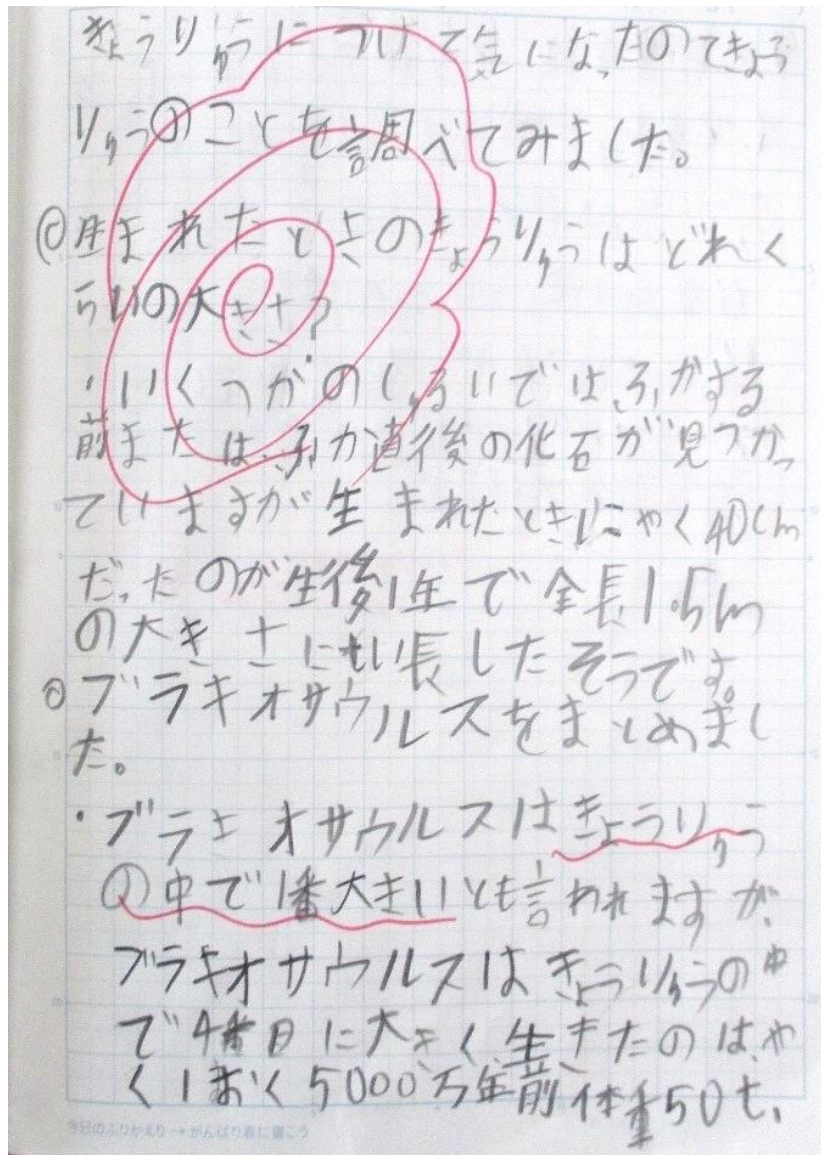 きょうりゅうについて気になったのできょう
りゅうのことを調べてみました。
◎生まれたときのきょうりゅうはどれく
らいの大きさ?
・いくつかのしゅるいでは、ふかする
前または、ふか直後の化石が見つかっ
ていますが生まれたときにやく40cm
だったのが生後1年で全長1.5m
の大きさにせい長したそうです。
◎ブラキオサウルスをまとめまし
た。
・ブラキオサウルスはきょうりゅう
の中で1番大きいとも言われますが、
ブラキオサウルスはきょうりゅうの中
で4番目に大きく、生きたのは、や
く1おく5000万年前体重50t、
今日のふりかえり→がんばり表に書こう